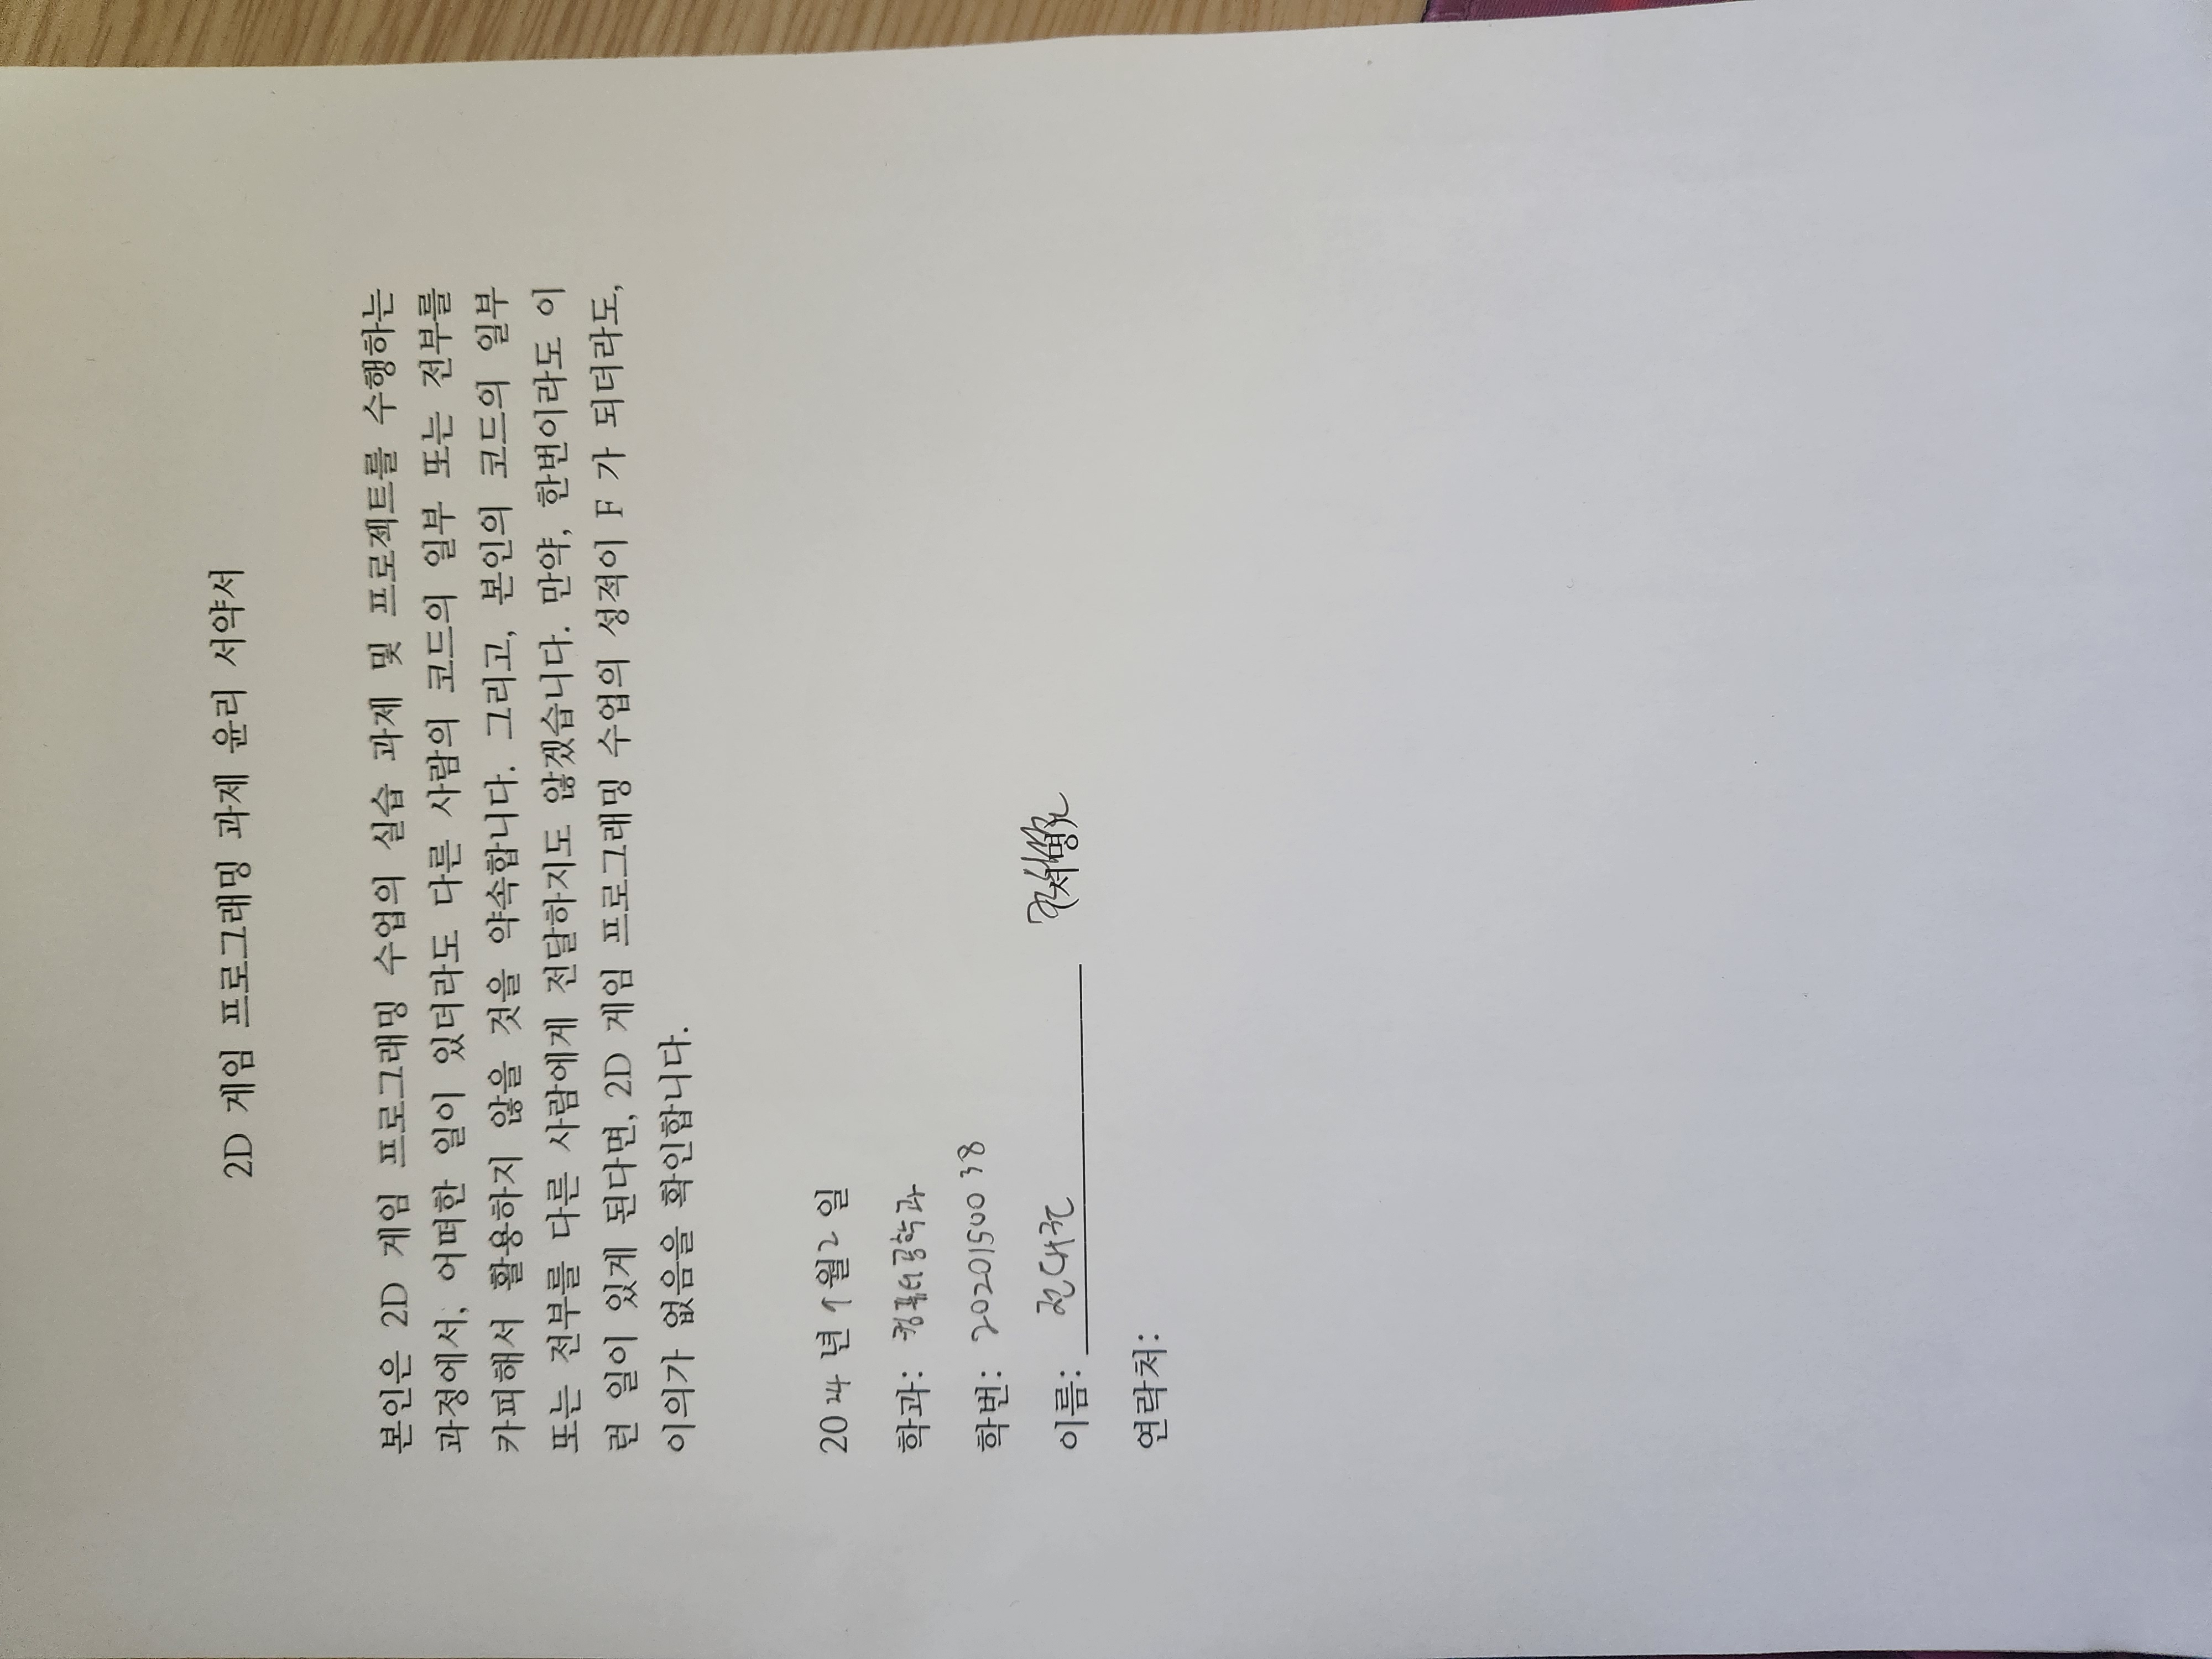 2D 게임 프로그래밍 과제 윤리 서약서
본인은 2D 게임 프로그래밍 수업의 실습 과제 및 프로젝트를 수행하는
과정에서, 어떠한 일이 있더라도 다른 사람의 코드의 일부 또는 전부를
카피해서 활용하지 않을 것을 약속합니다. 그리고, 본인의 코드의 일부
또는 전부를 다른 사람에게 전달하지도 않겠습니다. 만약, 한번이라도 이
런 일이 있게 된다면, 2D 게임 프로그래밍 수업의 성적이 F 가 되더라도,
이의가 없음을 확인합니다.
2024 년 9월 2 일
학과: 컴퓨터공학과
학번: 2020150038
이름: 전대준 (서명)
연락처: